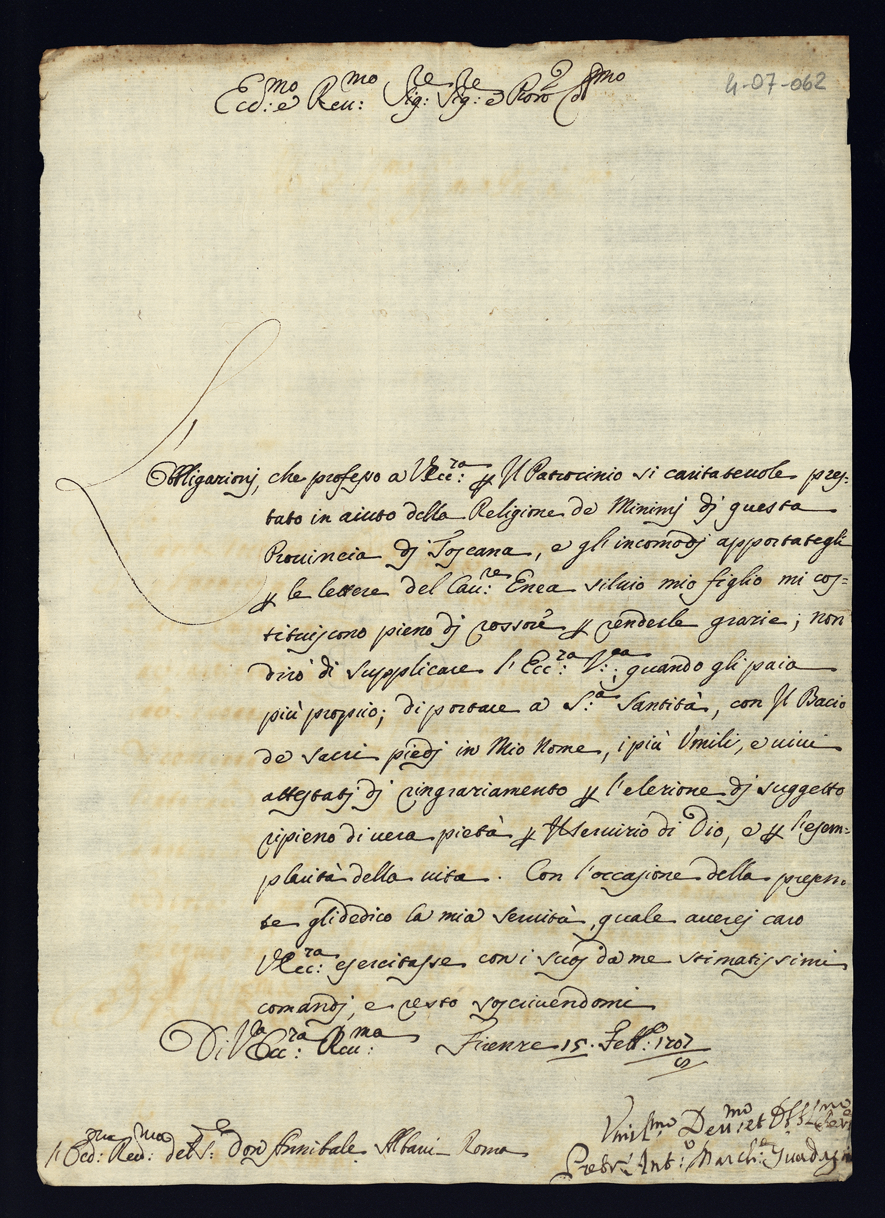 Ecc:mo e Reu:mo Sig:re Sig:re e Pron
4-07-062
L'Obbligazionj, che professo a V. Ecc:ra p Il Patrocinio si caritatevole pres-
tato in aiuto della Religione de Minimj dj questa
Prouincia dj Toscana, e gl'incomodj apportategli
p le lettere del Cau:re Enea siluio mio figlio mi cos=
tituiscono pieno dj rossore p renderle grazie; non
dirò di supplicare l'Ecc:ra V:ra, quando gli paia
più propio; di portare a S:a Santità, con Il Bacio
de sacri piedj in Mio Nome, i più Umili, e uiui
attestatj dj ringraziamento p l'elezione dj suggetto
ripieno di uera pietà p Il Seruizio di Dio, e p l'esem=
plarità della uita. Con l'occasione della presen-
te gli dedico la mia seruitù, quale auerej caro
V. Ecc:ra esercitasse con i suoj da me stimatissimi
comandj, e resto soscriuendomi
Di V:a Ecc:ra Reu:ma Firenze 15. Febb: 1707
Umil:mo Deu:mo et Obb:mo Ser
Ecc: Reu:ma del S: Don Annibale Albani Roma
Pietro Ant:o March: Guadagni